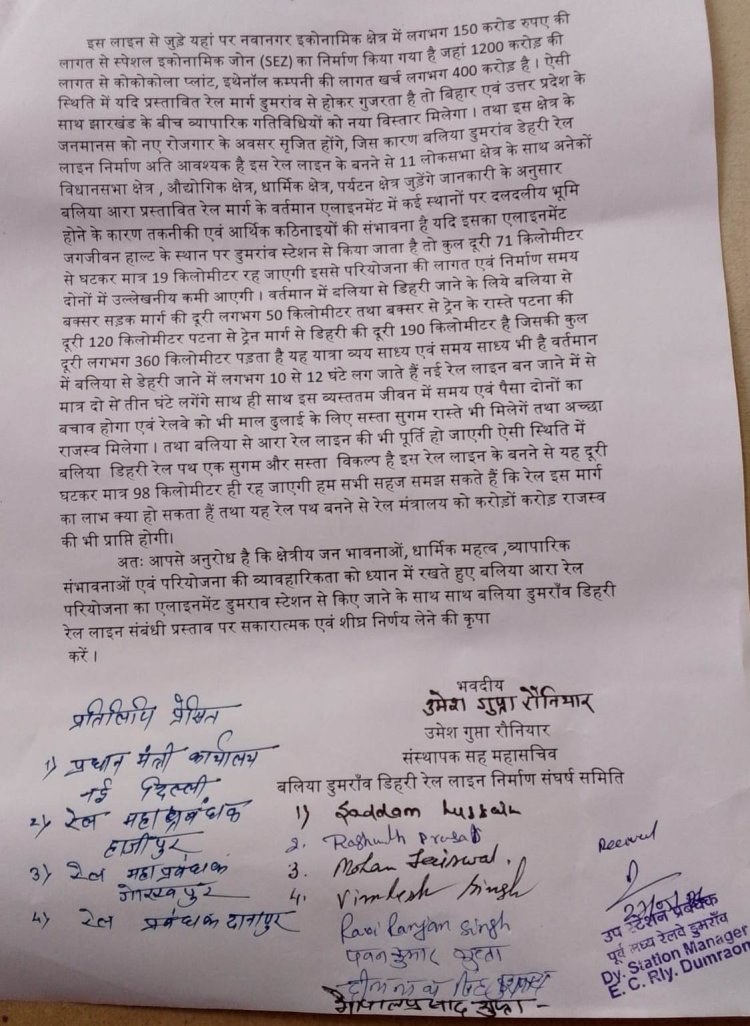 इस लाइन से जुड़े यहां पर नवानगर इकोनामिक क्षेत्र में लगभग 150 करोड रुपए की
लागत से स्पेशल इकोनामिक जोन (SEZ) का निर्माण किया गया है जहां 1200 करोड़ की
लागत से कोकोकोला प्लांट, इथेनॉल कम्पनी की लागत खर्च लगभग 400 करोड़ है । ऐसी
स्थिति में यदि प्रस्तावित रेल मार्ग डुमरांव से होकर गुजरता है तो बिहार एवं उत्तर प्रदेश के
साथ झारखंड के बीच व्यापारिक गतिविधियों को नया विस्तार मिलेगा । तथा इस क्षेत्र के
जनमानस को नए रोजगार के अवसर सृजित होंगे, जिस कारण बलिया डुमरांव डेहरी रेल
लाइन निर्माण अति आवश्यक है इस रेल लाइन के बनने से 11 लोकसभा क्षेत्र के साथ अनेकों
विधानसभा क्षेत्र , औद्योगिक क्षेत्र, धार्मिक क्षेत्र, पर्यटन क्षेत्र जुड़ेंगे जानकारी के अनुसार
बलिया आरा प्रस्तावित रेल मार्ग के वर्तमान एलाइनमेंट में कई स्थानों पर दलदलीय भूमि
होने के कारण तकनीकी एवं आर्थिक कठिनाइयों की संभावना है यदि इसका एलाइनमेंट
जगजीवन हाल्ट के स्थान पर डुमरांव स्टेशन से किया जाता है तो कुल दूरी 71 किलोमीटर
से घटकर मात्र 19 किलोमीटर रह जाएगी इससे परियोजना की लागत एवं निर्माण समय
दोनों में उल्लेखनीय कमी आएगी । वर्तमान में बलिया से डिहरी जाने के लिये बलिया से
बक्सर सड़क मार्ग की दूरी लगभग 50 किलोमीटर तथा बक्सर से ट्रेन के रास्ते पटना की
दूरी 120 किलोमीटर पटना से ट्रेन मार्ग से डिहरी की दूरी 190 किलोमीटर है जिसकी कुल
दूरी लगभग 360 किलोमीटर पड़ता है यह यात्रा व्यय साध्य एवं समय साध्य भी है वर्तमान
में बलिया से डेहरी जाने में लगभग 10 से 12 घंटे लग जाते हैं नई रेल लाइन बन जाने में से
मात्र दो से तीन घंटे लगेंगे साथ ही साथ इस व्यस्ततम जीवन में समय एवं पैसा दोनों का
बचाव होगा एवं रेलवे को भी माल दुलाई के लिए सस्ता सुगम रास्ते भी मिलेगें तथा अच्छा
राजस्व मिलेगा । तथा बलिया से आरा रेल लाइन की भी पूर्ति हो जाएगी ऐसी स्थिति में
बलिया डिहरी रेल पथ एक सुगम और सस्ता विकल्प है इस रेल लाइन के बनने से यह दूरी
घटकर मात्र 98 किलोमीटर ही रह जाएगी हम सभी सहज समझ सकते हैं कि रेल इस मार्ग
का लाभ क्या हो सकता हैं तथा यह रेल पथ बनने से रेल मंत्रालय को करोड़ों करोड़ राजस्व
की भी प्राप्ति होगी।
अतः आपसे अनुरोध है कि क्षेत्रीय जन भावनाओं, धार्मिक महत्व ,व्यापारिक
संभावनाओं एवं परियोजना की व्यावहारिकता को ध्यान में रखते हुए बलिया आरा रेल
परियोजना का एलाइनमेंट डुमराव स्टेशन से किए जाने के साथ साथ बलिया डुमराँव डिहरी
रेल लाइन संबंधी प्रस्ताव पर सकारात्मक एवं शीघ्र निर्णय लेने की कृपा
करें ।
भवदीय
उमेश गुप्ता रौनियार
उमेश गुप्ता रौनियार
संस्थापक सह महासचिव
बलिया डुमराँव डिहरी रेल लाइन निर्माण संघर्ष समिति
प्रतिलिपि प्रेषित
1) प्रधान मंत्री कार्यालय
नई दिल्ली
2) रेल महाप्रबंधक
हाजीपुर
3) रेल महाप्रबंधक
गोरखपुर
4) रेल प्रबंधक दानापुर
1) Saddam Hussain
2. Prasad
3. Mohan Jaiswal.
4. Vimlesh Singh
Ravi Ranjan Singh
पवन कुमार गुप्ता
गोपाल प्रसाद गुप्ता
Received
उप स्टेशन प्रबंधक
पूर्व मध्य रेलवे डुमराँव
Dy. Station Manager
E. C. Rly. Dumraon